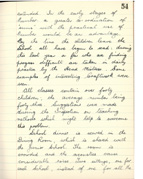 54
extended. In the early stages of
number a greater co-ordination of
with the practical use of
number would be an advantage.
the time the children leave the
School all have begun to read and in
the last year a few who are finding
progress difficult are taken in daily
practice by the Head Mistress. Some
examples of interesting handwork were
seen.
All classes contain over forty
children, the average number being
forty-three. Suggestions were made
during the Inspection on teaching
methods which might help to overcome
this problem.
School dinner is served in the
Dining Room, which is shared with
the Junior School. The room is
crowded and the acoustics make
considerable noise. Two sittings, one for
each School, instead of one for all the